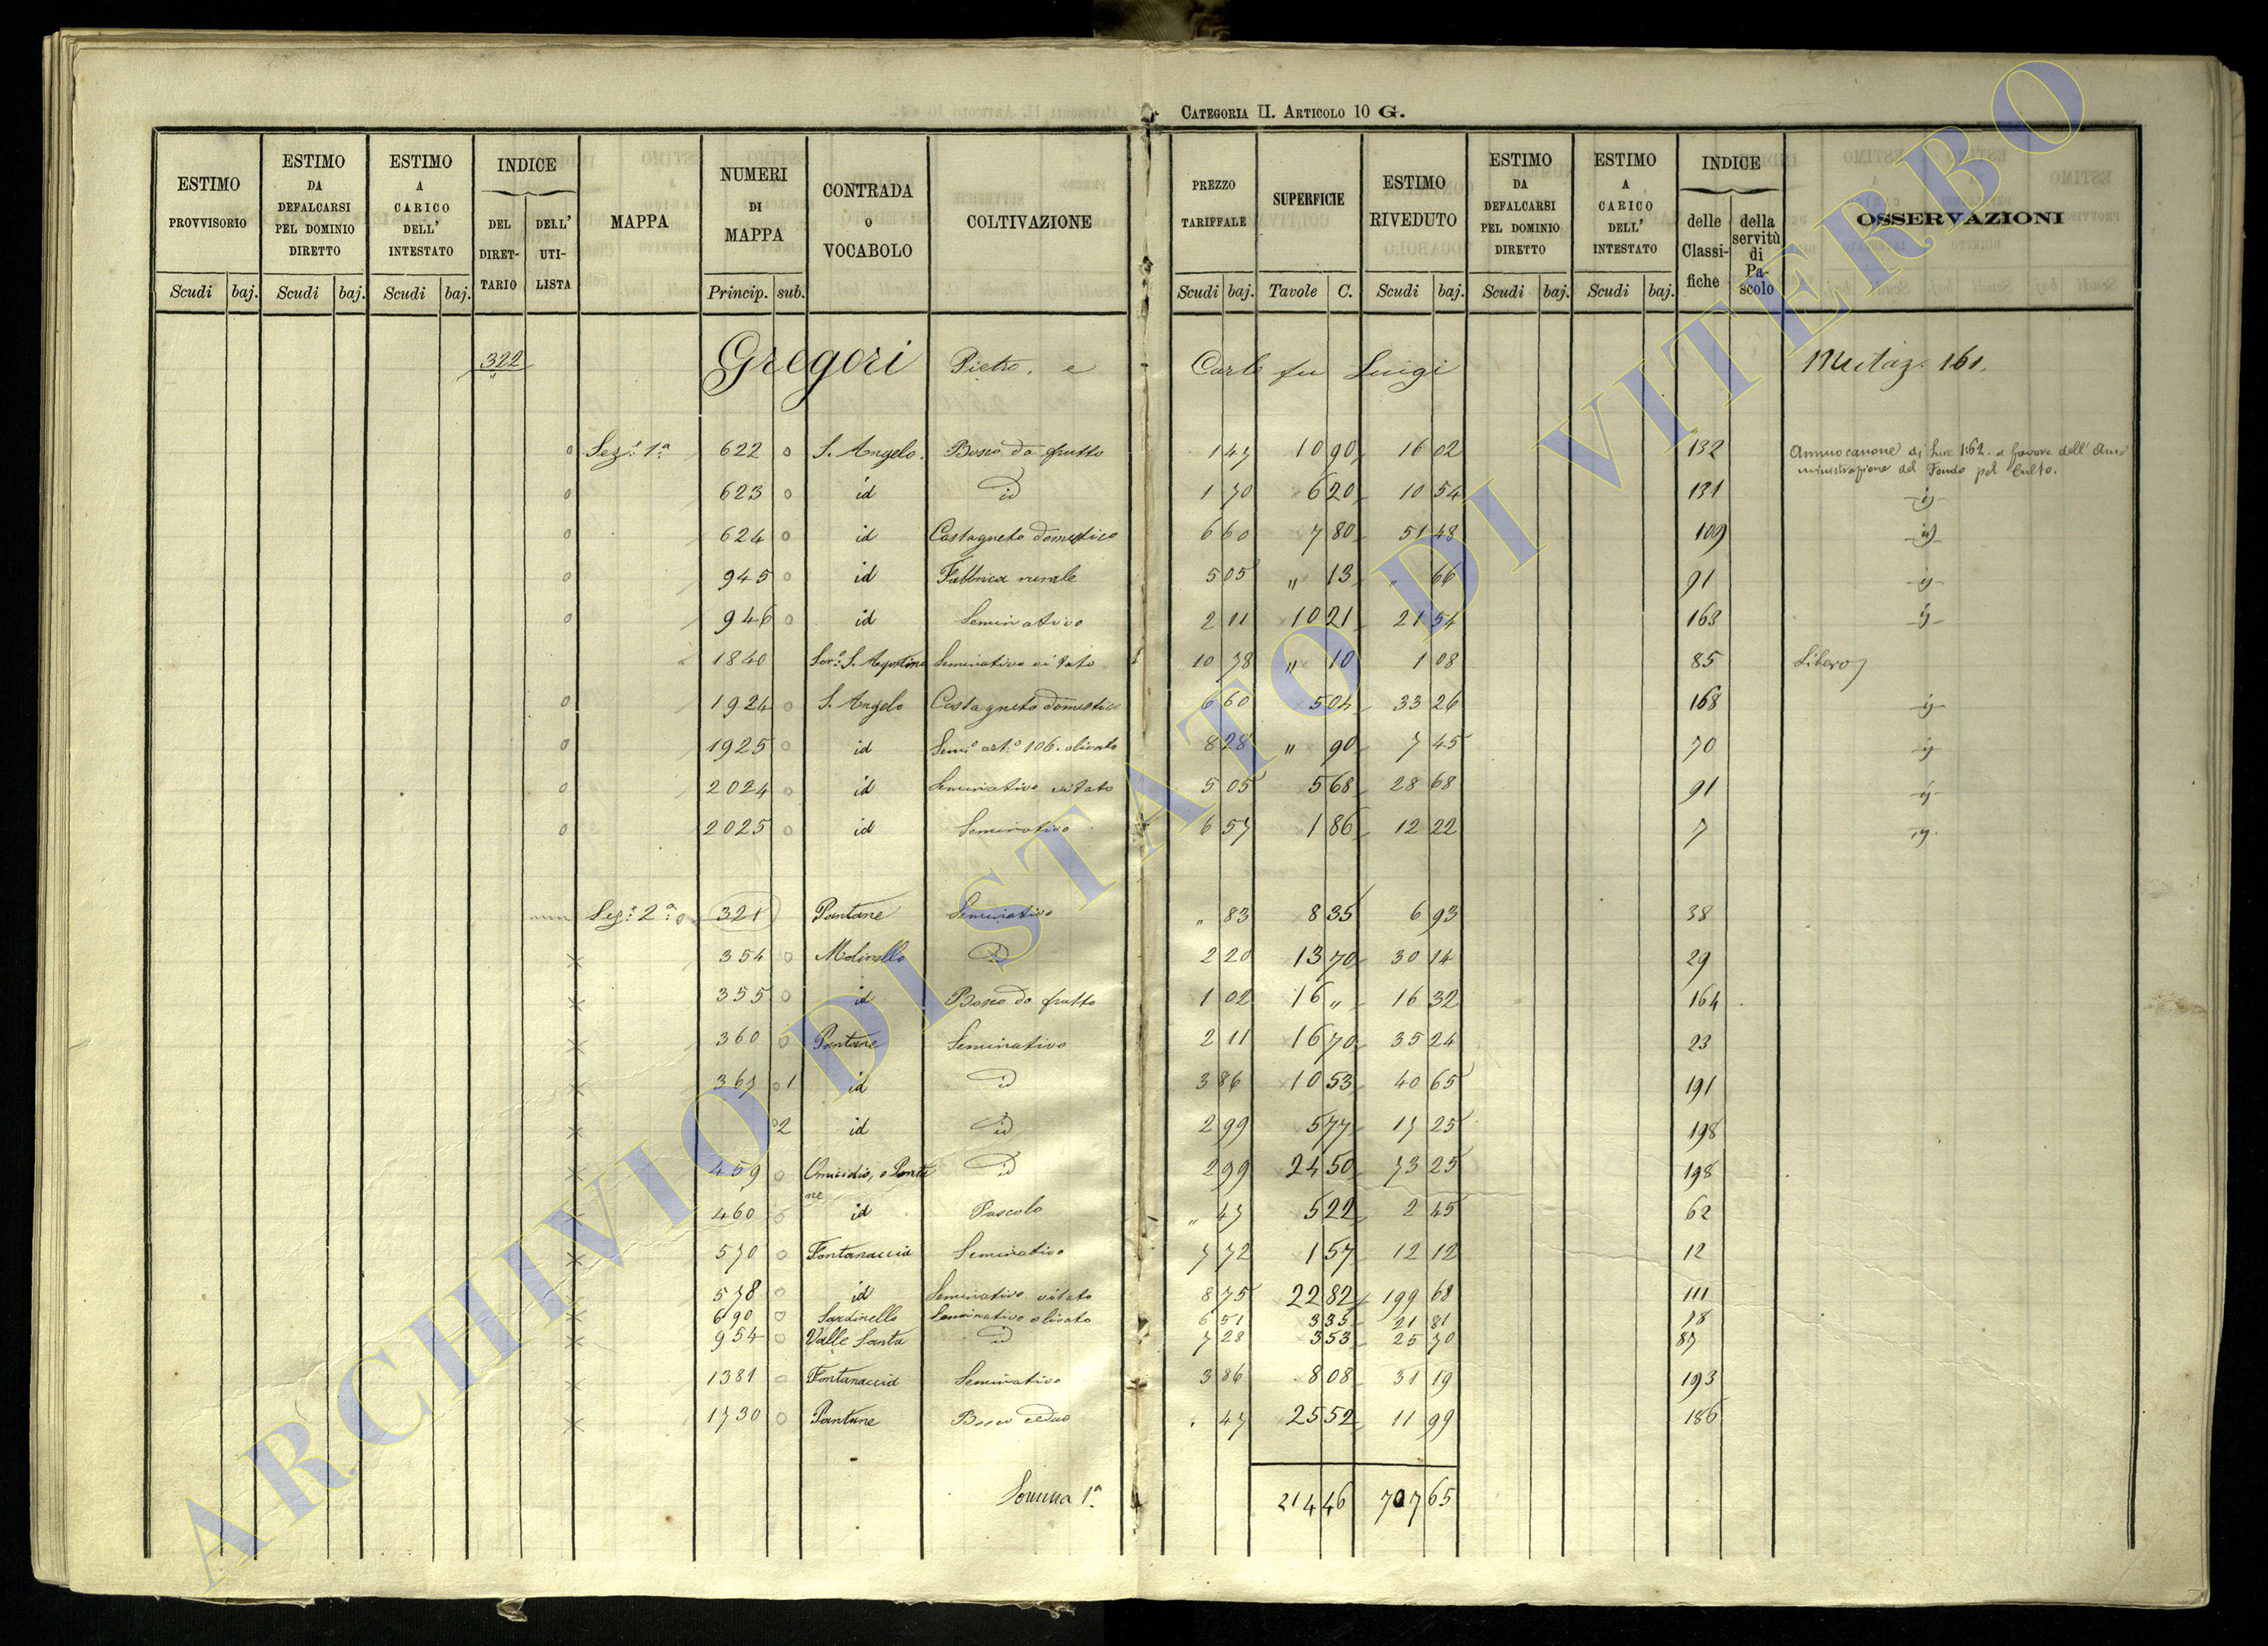 CATEGORIA II. ARTICOLO 10 G.
ESTIMO PROVVISORIO | ESTIMO DA DEFALCARSI PEL DOMINIO DIRETTO | ESTIMO A CARICO DELL' INTESTATO | INDICE DEL DIRETTARIO | DELL' UTILISTA | MAPPA | NUMERI DI MAPPA | CONTRADA O VOCABOLO | COLTIVAZIONE | PREZZO TARIFFALE | SUPERFICIE | ESTIMO RIVEDUTO | ESTIMO DA DEFALCARSI PEL DOMINIO DIRETTO | ESTIMO A CARICO DELL' INTESTATO | INDICE delle Classifiche | della servitù di Pascolo | OSSERVAZIONI
Scudi baj. | Scudi baj. | Scudi baj. | Princip. sub. | Scudi baj. | Tavole C. | Scudi baj. | Scudi baj. | Scudi baj.
322 Gregori Pietro, e Carlo fu Luigi Mutaz. 161.
o Sez. 1ª 622 o S. Angelo. Bosco da frutto 1 47 10 90 16 02 132 Annuo canone di Lire 1:62. a favore dell' Amministrazione del Fondo pel Culto.
o 623 o id id 1 70 6 20 10 54 131 id
o 624 o id Castagneto domestico 6 60 7 80 51 48 109 id
o 945 o id Fabbrica rurale 5 05 " 13 " 66 91 id
o 946 o id Seminativo 2 11 10 21 21 54 163 id
1840 S. Agostino Seminativo vitato 10 78 " 10 1 08 85 Libero
o 1924 o S. Angelo Castagneto domestico 6 60 5 04 33 26 168 id
o 1925 o id Semo arto 106. olivato 8 28 " 90 7 45 70 id
o 2024 o id Seminativo vitato 5 05 5 68 28 68 91 id
o 2025 o id Seminativo 6 57 1 86 12 22 7 id
Sez. 2ª o 321 Pantane Seminativo " 83 8 35 6 93 38
x 354 o Molinella id 2 20 13 70 30 14 29
x 355 o id Bosco da frutto 1 02 16 " 16 32 164
x 360 o Pantane Seminativo 2 11 16 70 35 24 23
x 367 o 1 id id 3 86 10 53 40 65 191
x o 2 id id 2 99 5 77 17 25 198
x 459 o Omicidio, o Pantane id 2 99 24 50 73 25 198
x 460 o id Pascolo " 47 5 22 2 45 62
x 570 o Fontanaccia Seminativo 7 72 1 57 12 12 12
x 578 o id Seminativo vitato 8 75 22 82 199 68 111
x 690 o Sardinello Seminativo olivato 6 51 3 35 21 81 78
x 954 o Valle Santa id 7 28 3 53 25 70 87
x 1381 o Fontanaccia Seminativo 3 86 8 08 31 19 193
x 1730 o Pantane Bosco ceduo " 47 25 52 11 99 186
Somma 1ª 214 46 707 65
ARCHIVIO DI STATO DI VITERBO